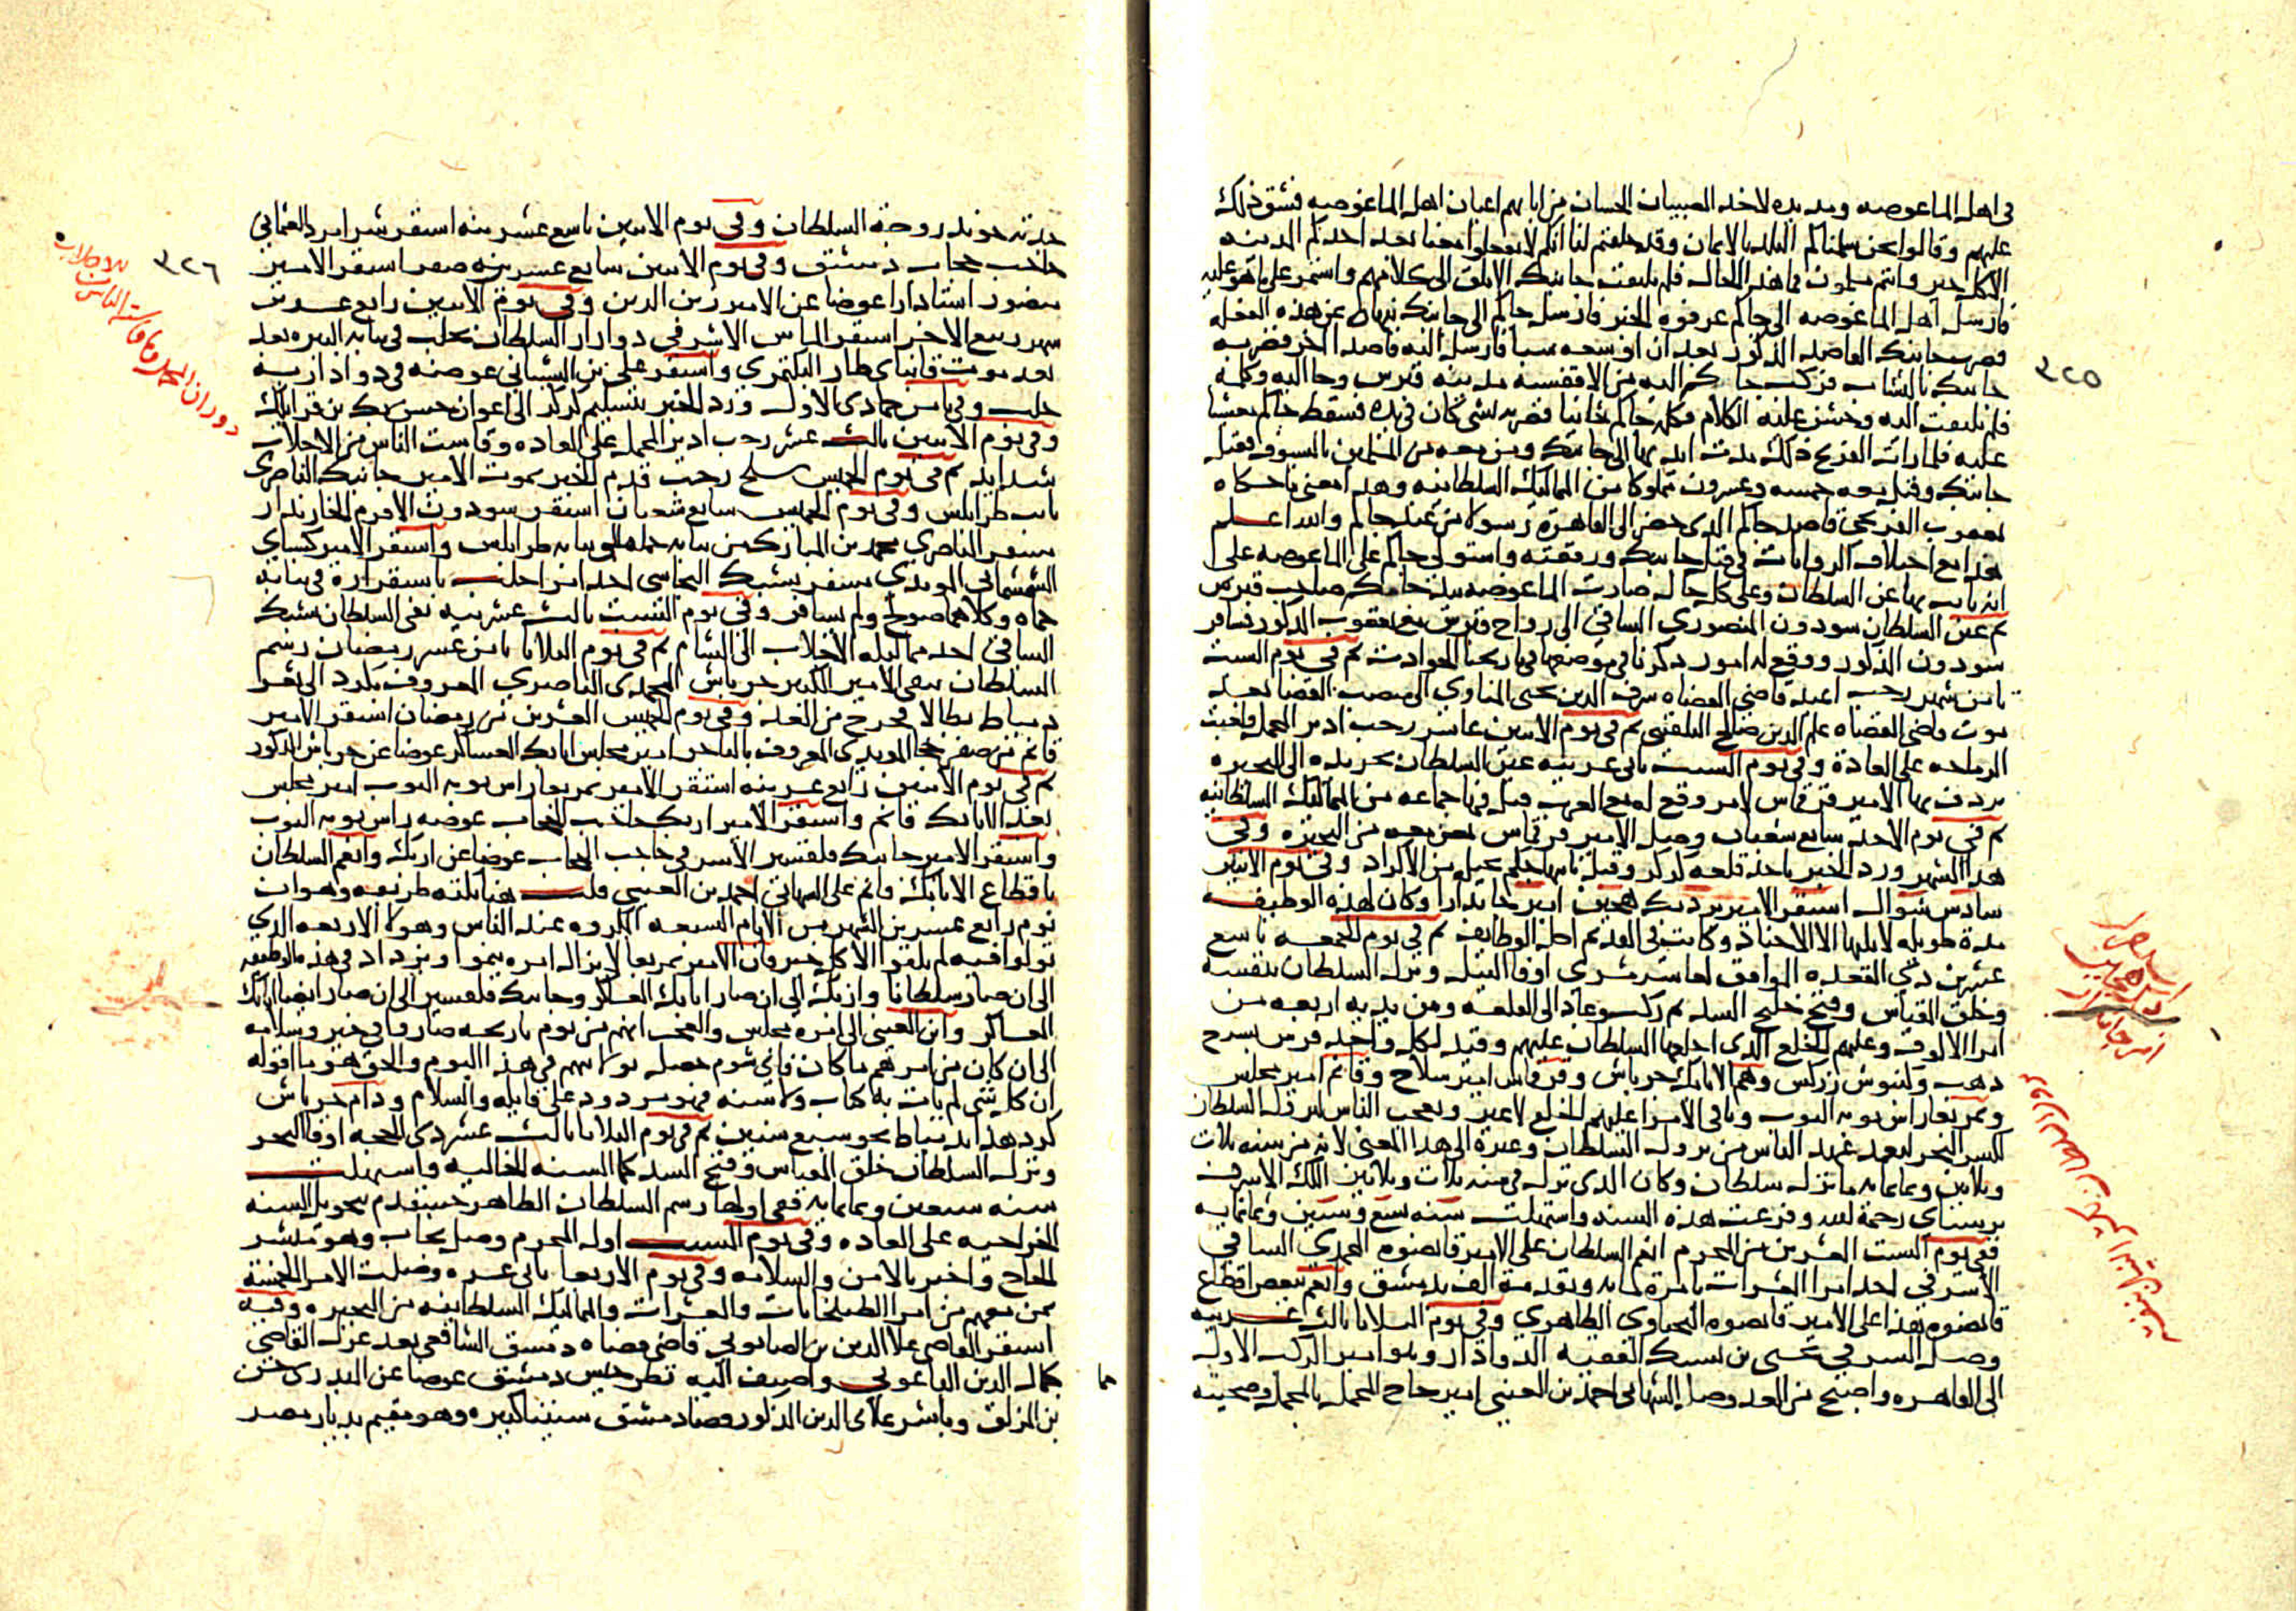 في اهل الماغوصه ومد يده لاخذ الصبيان الحسان من ابايهم اعيان اهل الماغوصه فشق ذلك
عليهم وقالوا نحن سلمناكم البلد بالامان وقد حلفتم لنا انكم لا تفعلوا معنا بعد اخدكم المدينه
الا كل خير وانتم مسلمون فما هذا الحال فلم يلتفت جانبك الابلق الى كلامهم واستمر على ما هو عليه
فارسل اهل الماغوصه الى جاكم عرفوه الخبر فارسل جاكم الى جانبك ينهاه عن هذه الفعله
فضرب جانبك القاصد المذكور بعد ان اوسعه سبا فارسل اليه قاصدا اخر فضربه
جانبك بالنشاب فركب جاكم اليه من الافقسيه مدينه قبرس وجا اليه وكلمه
فلم يلتفت اليه وخشن عليه الكلام فكلمه جاكم ثانيا فضربه بشي كان في يده فسقط جاكم مغشيا
عليه فلما رات الفرنج ذلك مدت ايديها الى جانبك ومن معه من المسلمين بالسيوف فقتل
جانبك وقتل معه خمسه وعشرون مملوكا من المماليك السلطانيه وهذا معنى ما حكاه
يعقوب الفرنجي قاصد جاكم الدي حضر الى القاهرة رسولا من عند جاكم والله اعلم
هذا مع اختلاف الروايات في قتل جانبك ورفقته واستولى جاكم على الماغوصه على
انه نايب بها عن السلطان وعلى كل حال صارت الماغوصه بيد جاكم صاحب قبرس
ثم عين السلطان سودون المنصوري الساقي الى رواح قبرس مع يعقوب المذكور فسافر
سودون المذكور ووقع له امور ذكرناها في موضعها في تاريخنا الحوادث ثم في يوم السبت
ثامن شهر رجب اعيد قاضي القضاه شرف الدين يحيى المناوي الى منصب القضا بعد
موت قاضي القضاه علم الدين صالح البلقيني ثم في يوم الاثنين عاشر رجب ادير المحمل ولعبت
الرماحه على العادة وفي يوم السبت ثاني عشرينه عين السلطان تجريده الى البحيره
يردف بها الامير قرقماس لامر وقع له مع العرب قتل فيها جماعه من المماليك السلطانيه
ثم في يوم الاحد سابع شعبان وصل الامير قرقماس بمن معه من البحيره وفي
هذا الشهر ورد الخبر باخذ قلعه كركر وقتل نايبها بحيله من الاكراد وفي يوم الاثنين
سادس شوال استقر الامير بردبك هجين امير جاندارا وكان لهذه الوظيفه
مدة طويله لا يليها الا الاجناد وكانت في القديم اجل الوظايف ثم في يوم الجمعه تاسع
عشرين ذي القعده الموافق لعاشر مسري اوفا النيل ونزل السلطان بنفسه
وخلق المقياس وفتح خليج السد ثم ركب وعاد الى القلعه ومن يديه اربعه من
امرا الالوف وعليهم الخلع الذي اخلعها السلطان عليهم وقيد لكل واحد فرس بسرج
ذهب وكنبوش زركش وهم الاتابك جرباش وقرقماس امير سلاح وقانم امير مجلس
وتمربغا راس نوبه النوب وباقي الامرا عليهم الخلع لا غير وتعجب الناس لنزول السلطان
لكسر البحر لبعد عهد الناس من نزول السلطان وغيره الى هذا المعنى لانه من سنه ثلاث
وثلاثين وثمانمايه ما نزل سلطان وكان الدي نزل في سنه ثلاث وثلاثين الملك الاشرف
برسباي رحمة الله وفرغت هذه السنه واستهلت سنه تسع وستين وثمانمايه
ففي يوم السبت العشرين من المحرم انعم السلطان على الامير قانصوه المحمدي الساقي
الاشرفي احد امرا العشرات بامرة مايه وتقدمة الف بدمشق وانعم ببعض اقطاع
قانصوه هذا على الامير قانصوه اليحياوي الظاهري وفي يوم الثلاثا ثالث عشرينه
وصل الشرفي يحيى بن يشبك الفقيه الدوادار وهو امير الركب الاول
الى القاهره واصبح من الغد وصل الشهابي احمد بن العيني امير حاج المحمل بالمحمل وصحبته
٣٢٥
جدته خوند زوجة السلطان وفي يوم الاثنين تاسع عشرينه استقر شرامرد العثماني
حاجب حجاب دمشق وفي يوم الاثنين سابع عشرين صفر استقر الامير
منصور استادارا عوضا عن الامير زين الدين وفي يوم الاثنين رابع عشرين
شهر ربيع الاخر استقر الماس الاشرفي دوادار السلطان بحلب في نيابه البيره بعد
بعد موت قانباي طاز البكتمري واستقر علي بن الشيباني عوضه في دواداريه
حلب وفي ثامن جمادى الاول ورد الخبر بتسليم كركر الى اعوان حسن بك بن قرايلك
وفي يوم الاثنين ثالث عشر رجب ادير المحمل على العاده وقاست الناس من الاجلاب
شدايد ثم في يوم الخميس سلخ رجب قدم الخبر بموت الامير جانبك الناصري
نايب طرابلس وفي يوم الخميس سابع شعبان استقر سودون الافرم الخازندار
مسفر الناصري محمد بن المبارك من نيابه حماه الى نيابه طرابلس واستقر الامير كسباي
الششماني المويدي مسفر يشبك البجاسي احد امرا حلب باستقراره في نيابه
حماه وكلاهما صولح ولم يسافر وفي يوم السبت ثالث عشرينه نفى السلطان يشبك
الساقي احد مماليكه الاجلاب الى الشام ثم في يوم الثلاثا ثامن عشر رمضان رسم
السلطان بنفي الامير الكبير جرباش المحمدي الناصري المعروف بكرد الى ثغر
دمياط بطالا فخرج من الغد وفي يوم الخميس العشرين من رمضان استقر الامير
قانم من صفر خجا المويدي المعروف بالتاجر امير مجلس اتابك العساكر عوضا عن جرباش المذكور
ثم في يوم الاثنين رابع عشرينه استقر الامير تمربغا راس نوبه النوب امير مجلس
بعد الاتابك قانم واستقر الامير ازبك حاجب الحجاب عوضه راس نوبه النوب
واستقر الامير جانبك قلقسيز الاشرفي حاجب الحجاب عوضا عن ازبك وانعم السلطان
باقطاع الاتابك قانم على الشهابي احمد بن العيني قلت هنا نكته ظريفه وهو ان
يوم رابع عشرين الشهر من الايام السبعه المكروه عند الناس وهولا الاربعه الذي
تولوا فيه لم يلقوا الا كل خير فان الامير تمربغا لا يزال امره ينمو ويزداد في هذه الوظيفه
الى ان صار سلطانا وازبك الى ان صار اتابك العساكر وجانبك قلقسيز الى ان صار ايضا اتابك
العساكر وابن العيني الى امرة مجلس والعجب انهم من يوم تاريخه صاروا في خير وسلامه
الى ان كان من امرهم ما كان فاني شوم حصل بولايتهم في هذا اليوم والحق هو ما اقوله
ان كل شي لم يات به كتاب ولا سنه فهو مردود على قايله والسلام ودام جرباش
كرد هذا بدمياط نحو سبع سنين ثم في يوم الثلاثا ثالث عشر ذي الحجه اوفا البحر
ونزل السلطان خلق المقياس وفتح السد كما السنه الخاليه واستهلت
سنه سبعين وثمانمايه ففي اولها رسم السلطان الظاهر خشقدم بتحويل السنه
الخراجيه على العاده وفي يوم السبت اول المحرم وصل نجاب وهو مبشر
الحاج واخبر بالامن والسلامه وفي يوم الاربعا ثاني عشره وصلت الامرا الخمسة
بمن معهم من امرا الطبلخانات والعشرات والمماليك السلطانيه من البحيره وفيه
استقر القاضي علا الدين بن الصابوني قاضي قضاه دمشق الشافعي بعد عزل القاضي
جمال الدين الباعوني واضيف اليه نظر جيش دمشق عوضا عن البدري حسن
بن المزلق وباشر علاي الدين المذكور قضا دمشق سنينا كثيره وهو مقيم بديار مصر
٣٢٦